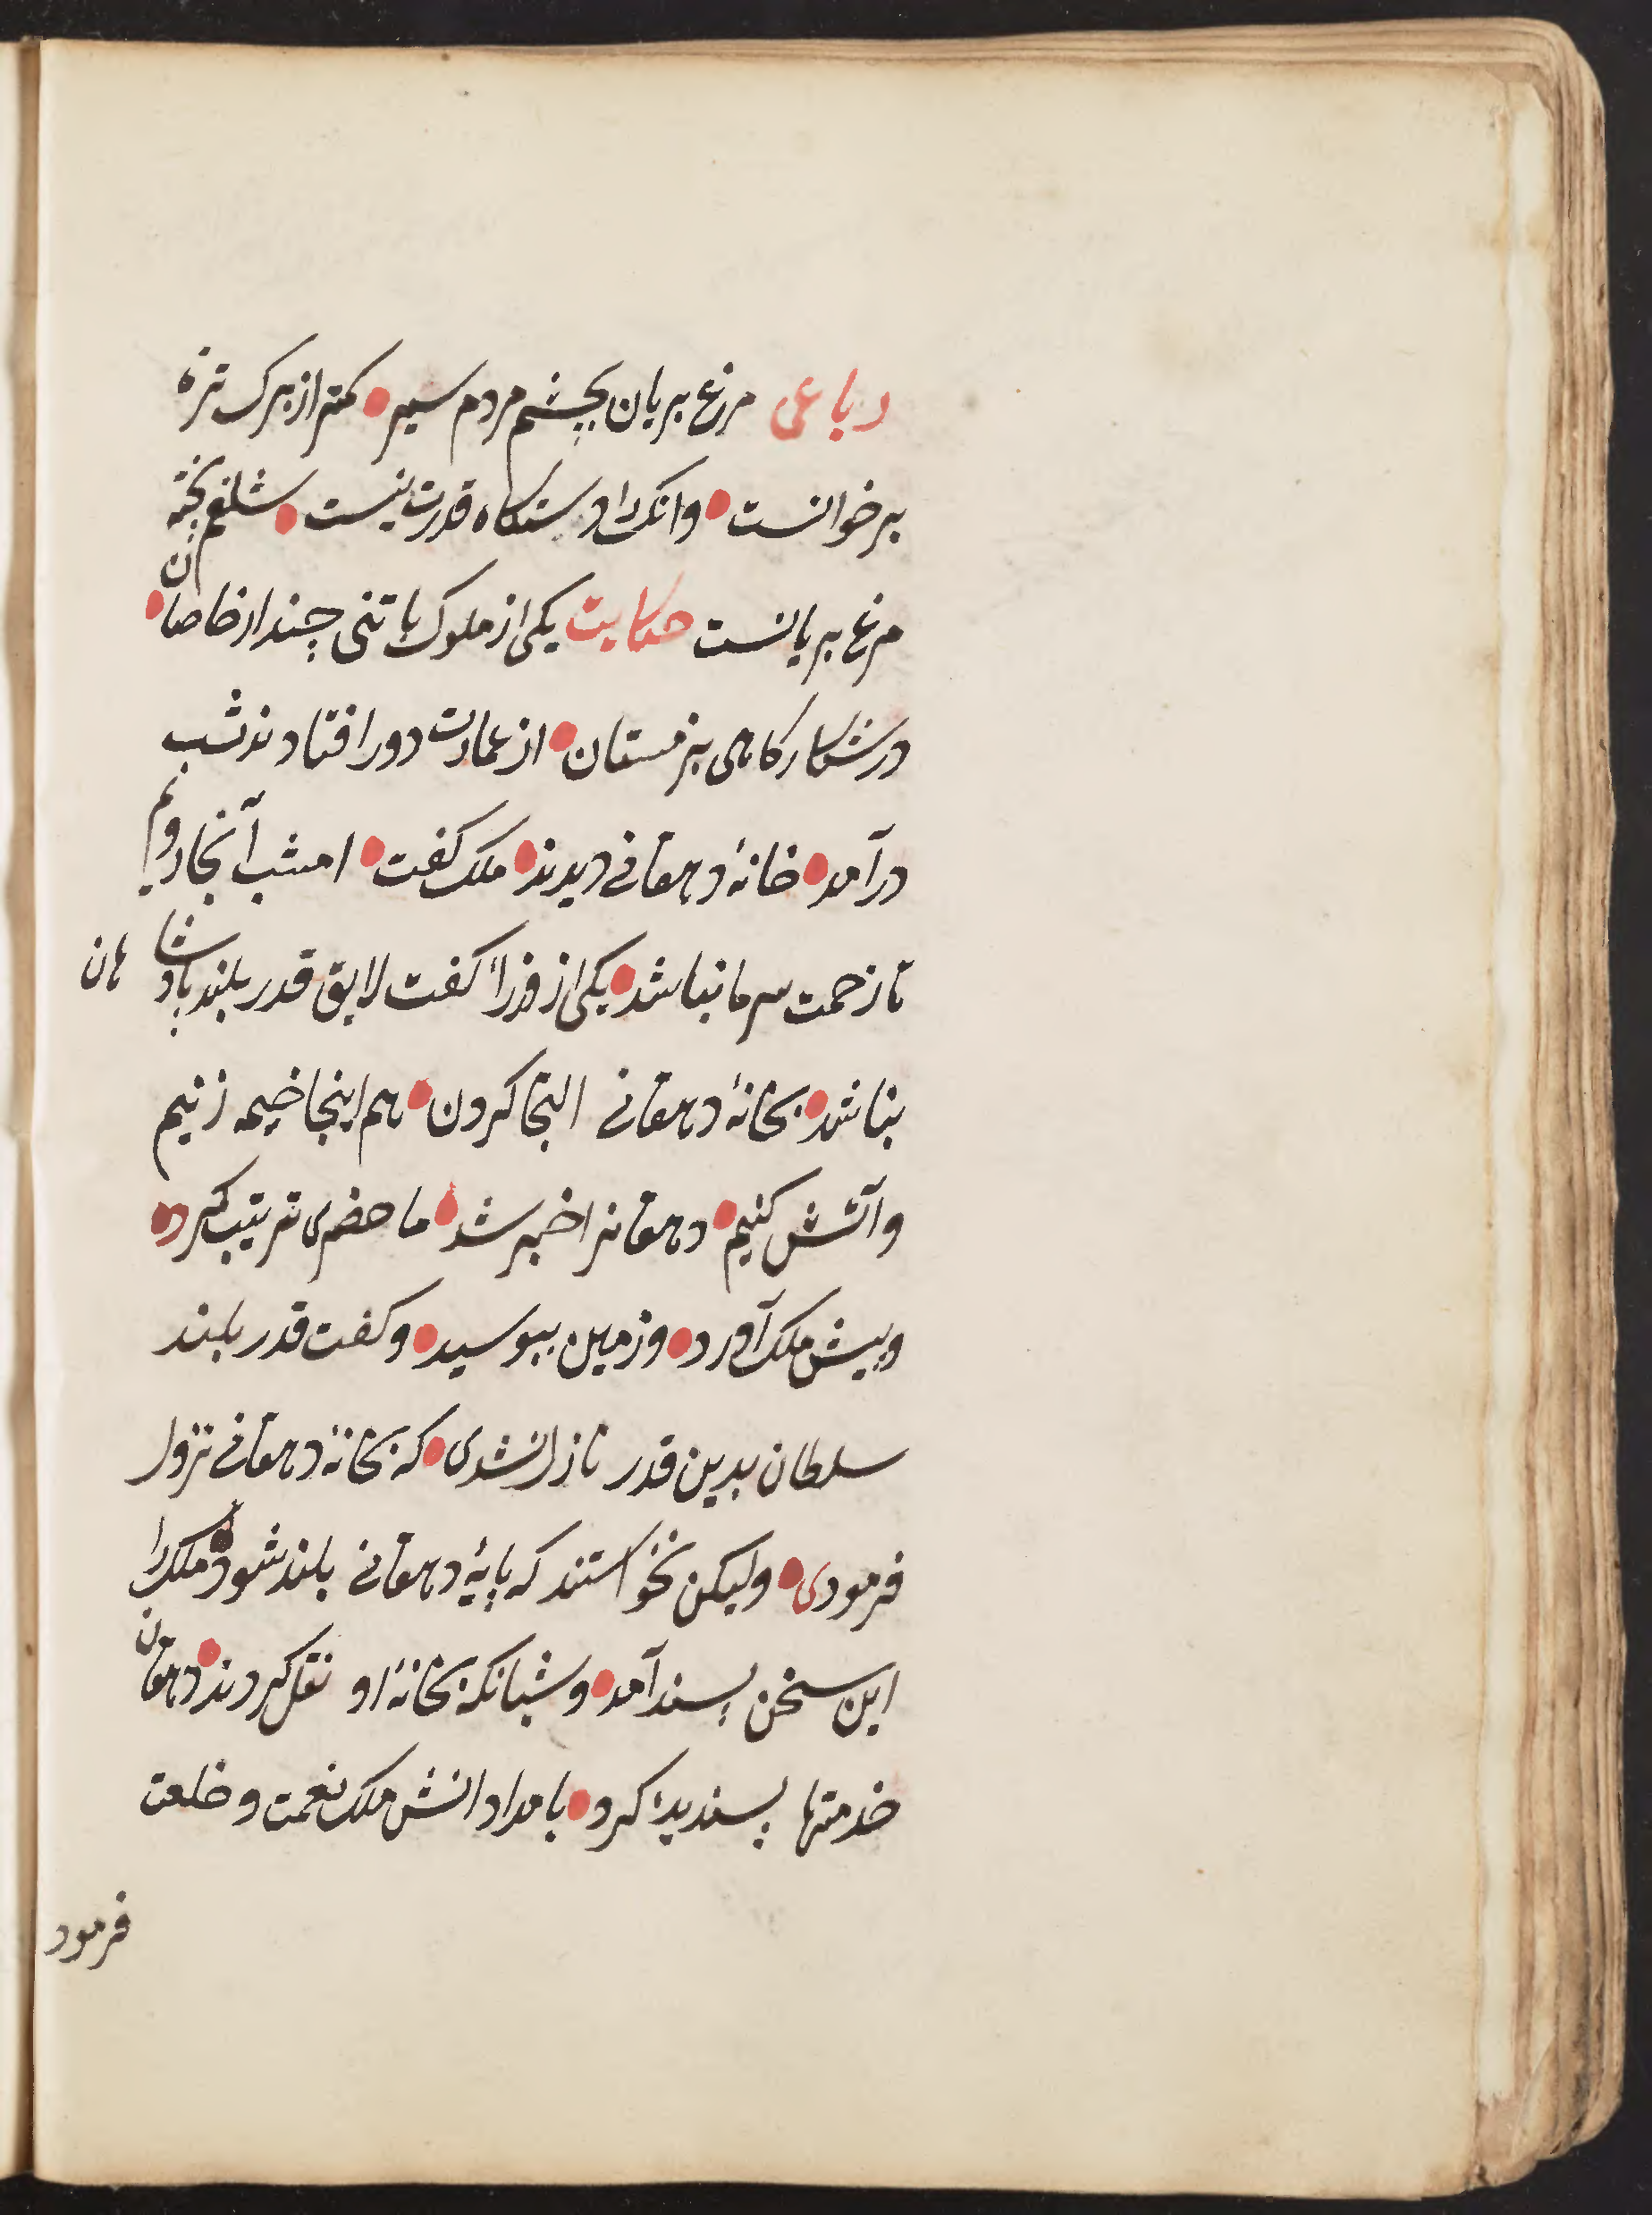 رباعی مرغ بریان بچشم مردم سیر • کمتر از برک تره
بر خوانست • وانکرا دستکاه قدرت نیست • شلغم پخته
مرغ بریانست حکایت یکی از ملوک با تنی چند از خاصان •
در شکارکاهی بزمستان • از عمارت دور افتادند شب
درآمد • خانهٔ دهقانی دیدند • ملک کفت • امشب آنجا رویم
تا زحمت سرما نباشد • یکی از وزرا کفت لایق قدر بلند پادشاهان
نباشد • بخانهٔ دهقانی التجا کردن • هم اینجا خیمه زنیم
و آتش کنیم • دهقانرا خبر شد • ما حضری ترتیب کرد •
و پیش ملک آورد • و زمین ببوسید • و کفت قدر بلند
سلطان بدین قدر نازل نشدی • که بخانهٔ دهقانی نزول
فرمودی • ولیکن نخواستند که پایهٔ دهقانی بلند شود • ملک را
این سخن پسند آمد • و شبانکه بخانهٔ او نقل کردند • دهقان
خدمتها پسندیده کرد • بامدادانش ملک نعمت و خلعت
فرمود